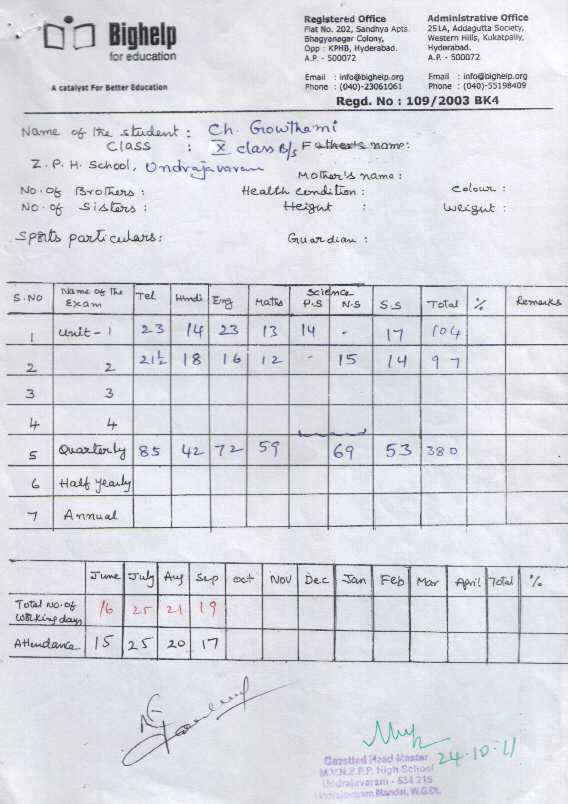 Bighelp
for education
A catalyst For Better Education
Registered Office
Flat No. 202, Sandhya Apts.
Bhagyanagar Colony,
Opp : KPHB, Hyderabad.
A.P. - 500072
Email : info@bighelp.org
Phone : (040)-23061061
Administrative Office
251A, Addagutta Society,
Western Hills, Kukatpally,
Hyderabad.
A.P. - 500072
Email : info@bighelp.org
Phone : (040)-55198409
Regd. No : 109/2003 BK4
Name of the student : Ch. Gowthami
CLASS : X class B/s Father's name:
Z. P. H. School, Undrajavaram Mother's name :
No. of Brothers : Health Condition : Colour :
No. of Sisters : Height : Weight :
Sports particulars: Guardian :
S.NO Name of the Exam Tel Hindi Eng Maths Science P.S N.S S.S Total % Remarks
1 Unit - 1 23 14 23 13 14 - 17 104
2 2 21½ 18 16 12 - 15 14 97
3 3
4 4
5 Quarterly 85 42 72 59 69 53 380
6 Half yearly
7 Annual
June July Aug Sep Oct Nov Dec Jan Feb Mar April Total %
Total No. of working days 16 25 21 19
Attendance 15 25 20 17
24-10-11
Gazetted Head Master
M.V.N.Z.P.P. High School
Undrajavaram - 534 216
Undrajavaram Mandal, W.G.Dt.